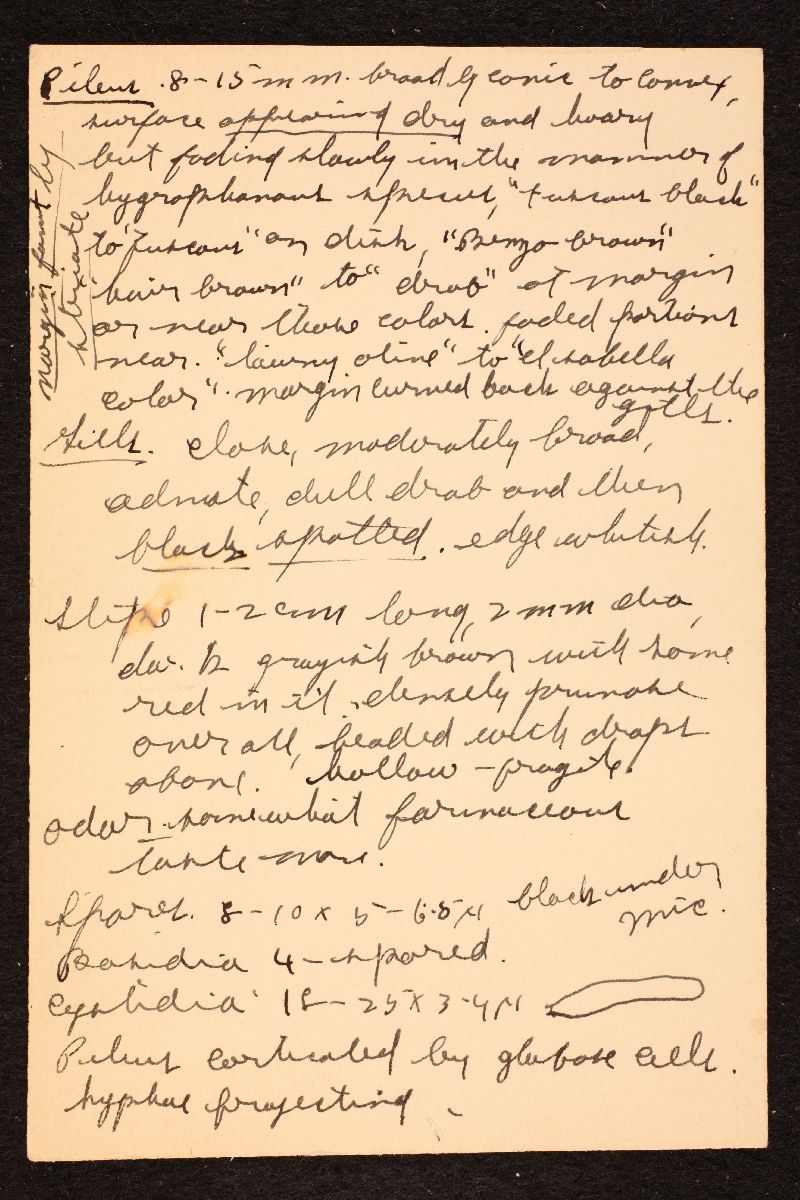 Pileus .8-15 mm. broadly conic to convex,
surface appearing dry and hoary
but fading slowly in the manner of
hygrophanous species, "fuscous black"
to "fuscous" on disk, "Benzo brown"
"hair brown" to "drab" at margin
or near those colors. faded portions
near. "tawny olive" to "Isabella
color". margin turned back against the
gills.
margin faintly
striate
Gills. close, moderately broad,
adnate, dull drab and then
black spotted. edge whitish.
Stipe 1-2 cm long, 2 mm dia,
grayish brown with some
red in it, densely pruinose
over all, beaded with drops
above. hollow - fragile.
odor somewhat farinaceous
taste none.
Spores. 8-10 x 5-6.5 µ black under
mic.
Basidia 4-spored.
Cystidia 18-25 x 3-4 µ
Pileus corticated by globose cells.
hyphae projecting